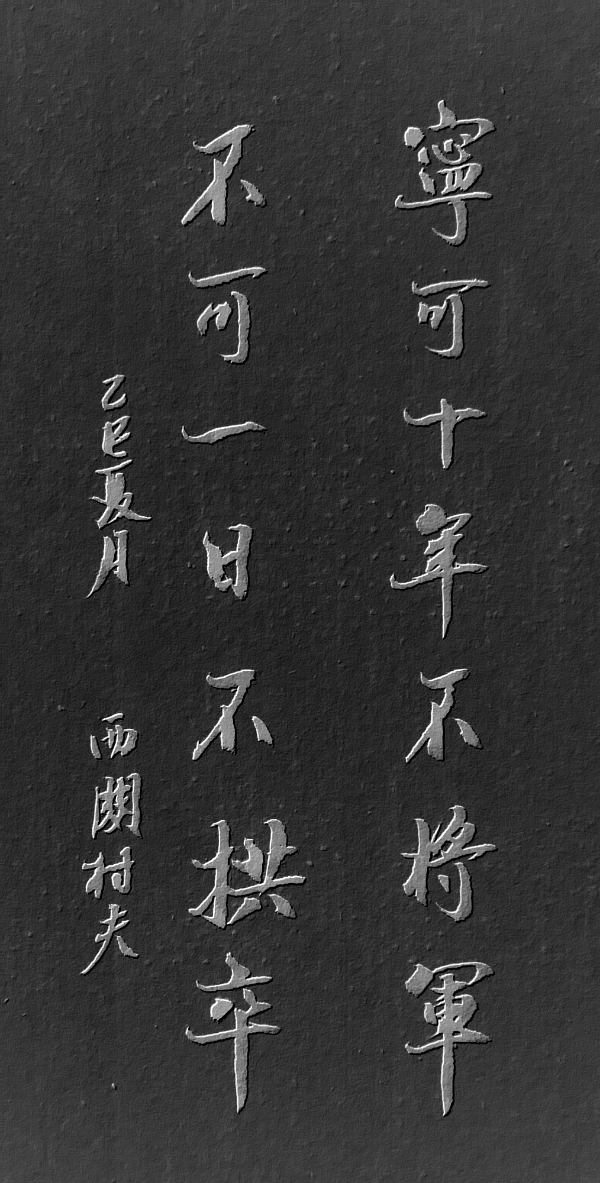 寧可十年不将軍
不可一日不拱卒
乙巳夏月
西關村夫